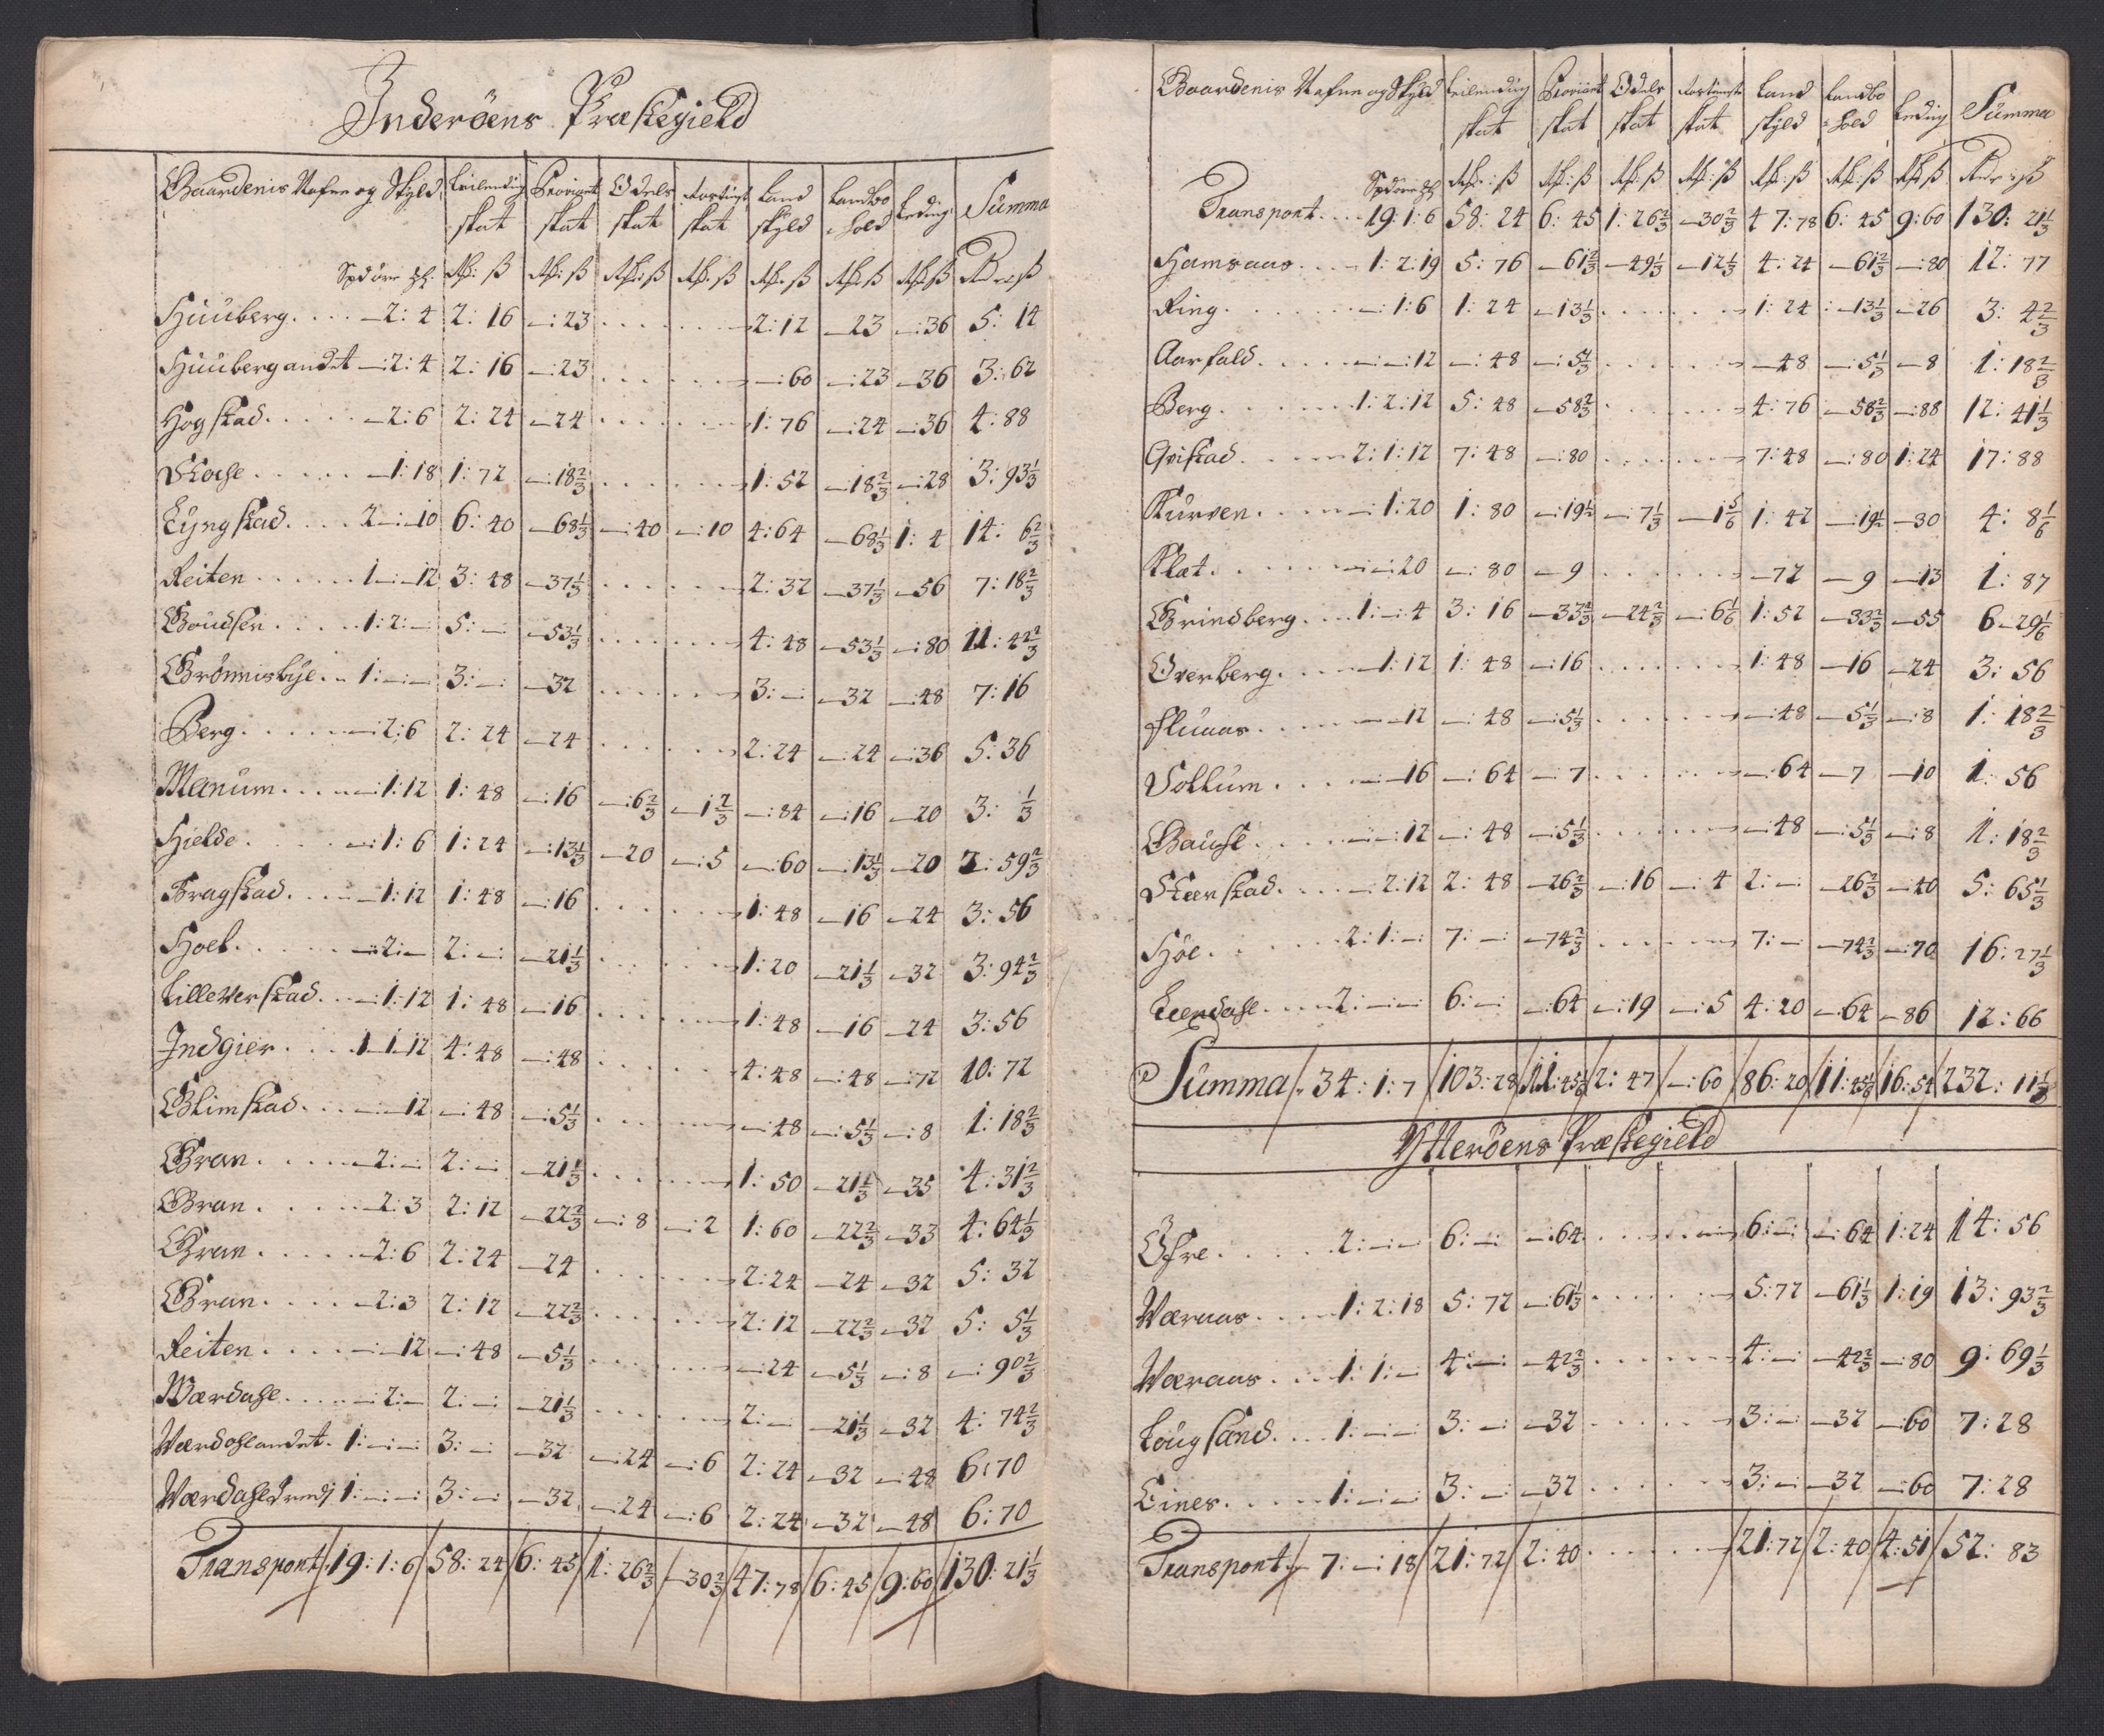 Inderöens Præstegield
Gaardenis Nafne og Skyld Leilending skat Proviant skat Odels skat skat Land skyld Landbohold Leding Summa
Spd öre Rd: ß Rd: ß Rd: ß Rd: ß Rd: ß Rd: ß Rd: ß Rdr ß
Huuberg . . . . —2: 4 2: 16 —: 23 . . . . 2: 12 —23 —:36 5: 14
Huuberg andet —:2: 4 2: 16 —:23 . . . . —:60 —:23 —36 3: 62
Hogstad . . . . —2: 6 2: 24 —24 . . . . 1: 76 —:24 —:36 4: 88
. . . . —1: 18 1: 72 —:18 2/3 . . . . 1: 52 —:18 2/3 —:28 3: 93 1/3
Lyngstad . . . . 2—:10 6: 40 —68 1/3 —:40 —:10 4: 64 —68 1/3 1: 4 14: 6 2/3
Reiten . . . . 1—:12 3: 48 —37 1/3 . . . . 2: 32 —37 1/3 —56 7: 18 2/3
. . . . 1: 2:— 5:— —53 1/3 . . . . 4: 48 —53 1/3 —:80 11: 42 2/3
Grönnisbye . . 1:—:— 3:— —32 . . . . 3:— —32 —:48 7: 16
Berg . . . . —:2: 6 2: 24 —24 . . . . 2: 24 —:24 —:36 5: 36
Manum . . . . —:1: 12 1: 48 —:16 —:6 2/3 —1 2/3 —:84 —:16 —20 3: 1/3
Hielde . . . . —:1: 6 1: 24 —:13 1/3 —20 —:5 —:60 —:13 1/3 —20 2: 59 2/3
Bragstad . . . . —1: 12 1: 48 —:16 . . . . 1: 48 —16 —24 3: 56
Hoel . . . . —:2:— 2:— —21 1/3 . . . . 1: 20 —21 1/3 —32 3: 94 2/3
Lilleverstad . . —:1: 12 1: 48 —:16 . . . . 1: 48 —16 —24 3: 56
Indgier . . . . 1: 1: 12 4: 48 —:48 . . . . 4: 48 —:48 —:72 10: 72
Glimstad . . . . —:—12 —:48 —:5 1/3 . . . . —:48 —:5 1/3 —:8 1: 18 2/3
Gran . . . . —2:— 2:— —21 1/3 . . . . 1: 50 —21 1/3 —35 4: 31 2/3
Gran . . . . —2: 3 2: 12 —22 2/3 —:8 —:2 1: 60 —22 2/3 —33 4: 64 1/3
Gran . . . . —2: 6 2: 24 —24 . . . . 2: 24 —24 —32 5: 32
Gran . . . . —2: 3 2: 12 —22 2/3 . . . . 2: 12 —22 2/3 —32 5: 5 1/3
Reiten . . . . —:—12 —:48 —5 1/3 . . . . —:24 —5 1/3 —:8 —:90 2/3
Wærdahl . . . . —2:— 2:— —21 1/3 . . . . 2:— —21 1/3 —32 4: 74 2/3
Værdahl andet . 1:—:— 3:— —32 —:24 —:6 2: 24 —32 —:48 6: 70
Værdahl 1:—:— 3:— —32 —24 —:6 2: 24 —32 —48 6: 70
Transport 19: 1: 6 58: 24 6: 45 1: 26 2/3 —30 2/3 47: 78 6: 45 9: 60 130: 21 1/3
Gaardenis Nafne og Skyld Leilending skat Proviant skat Odels skat skat Land skyld Landbohold Leding Summa
Spd öre Rd: ß Rd: ß Rd: ß Rd: ß Rd: ß Rd: ß Rd: ß Rdr ß
Transport . . . 19: 1: 6 58: 24 6: 45 1: 26 2/3 —30 2/3 47: 78 6: 45 9: 60 130: 21 1/3
Hamsaas . . . . 1: 2: 19 5: 76 —61 2/3 —49 1/3 —12 1/3 4: 24 —61 2/3 —:80 12: 77
Ring . . . . —:1: 6 1: 24 —13 1/3 . . . . 1: 24 —13 1/3 —26 3: 4 2/3
Aarfald . . . . —:—:12 —:48 —:5 1/3 . . . . —48 —:5 1/3 —8 1: 18 2/3
Berg . . . . 1: 2: 12 5: 48 —58 2/3 . . . . 4: 76 —58 2/3 —:88 12: 41 1/3
Qvistad . . . . 2: 1: 12 7: 48 —:80 . . . . 7: 48 —:80 1: 24 17: 88
Kurven . . . . —1: 20 1: 80 —:19 1/2 —:7 1/3 —1 5/6 1: 42 —:19 1/2 —30 4: 8 1/6
Klat . . . . —:—:20 —:80 —9 . . . . —72 —9 —13 1: 87
Grindberg . . . 1:—:4 3: 16 —33 2/3 —24 2/3 —:6 1/6 1: 52 —33 2/3 —55 6—29 1/6
Overberg . . . . —1: 12 1: 48 —:16 . . . . 1: 48 —16 —24 3: 56
Fluaas . . . . —:—12 —:48 —:5 1/3 . . . . —:48 —5 1/3 —:8 1: 18 2/3
Vollum . . . . —:—16 —:64 —:7 . . . . —:64 —7 —10 1: 56
. . . . —:—:12 —:48 —:5 1/3 . . . . —:48 —:5 1/3 —:8 1: 18 2/3
Skierstad . . . . —:2: 12 2: 48 —26 2/3 —:16 —:4 2:— —26 2/3 —:40 5: 65 1/3
. . . . 2: 1:— 7:— —74 2/3 . . . . 7:— —74 2/3 —:70 16: 27 1/3
Leerdahl . . . . 2:—:— 6:— —:64 —:19 —:5 4: 20 —:64 —86 12: 66
Summa 34: 1: 7 103: 28 11: 45 2: 47 —:60 86: 20 11: 45 16: 54 232: 11
Ytteröens Præstegield
. . . . 2:—:— 6:— —:64 . . . . 6:— —:64 1: 24 14: 56
Væraas . . . . 1: 2: 18 5: 72 —:61 1/3 . . . . 5: 72 —61 1/3 1: 19 13: 93 2/3
Væraas . . . . 1: 1:— 4:— —42 2/3 . . . . 4:— —42 2/3 —:80 9: 69 1/3
. . . . 1:—:— 3:— —32 . . . . 3:— —32 —:60 7: 28
Eines . . . . 1:—:— 3:— —32 . . . . 3:— —32 —:60 7: 28
Transport 7:—:18 21: 72 2: 40 . . . . 21: 72 2: 40 4: 51 52: 83